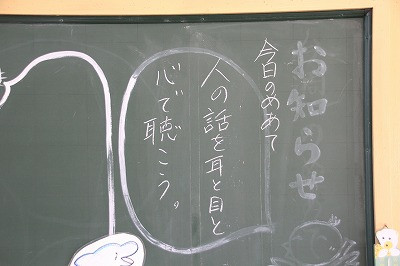 お知らせ
今日のめあて
人の話を耳と目と
心で聴こう。